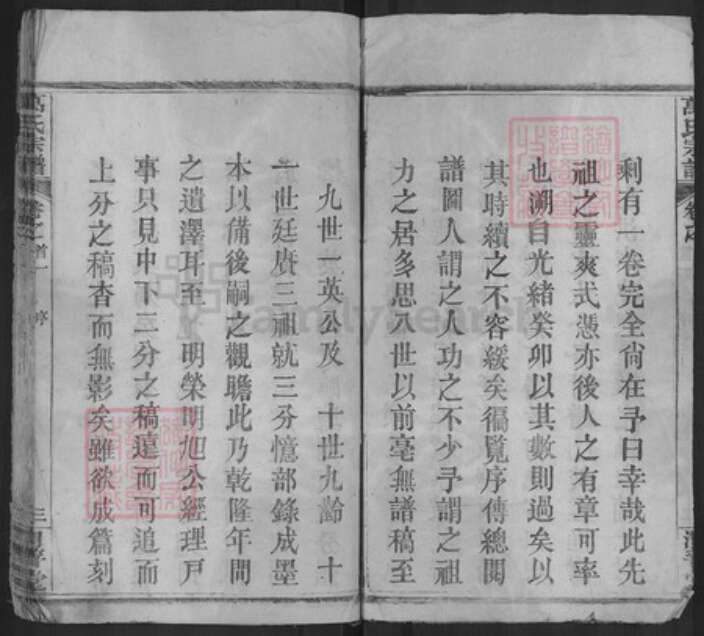 剩有一卷完全尚在予曰幸哉此先
祖之靈爽式憑亦後人之有章可率
也溯自光緒癸卯以其數則過矣以
其時續之不容緩矣徧覽序傳總閱
譜圖人謂之人功之不少予謂之祖
力之居多思八世以前毫無譜稿至
九世一英公及 十世九齡 十
一世廷賡三祖就三分憶部錄成墨
本以備後嗣之觀瞻此乃乾隆年間
之遺澤耳至 明榮明旭公經理戶
事只見中下二分之稿遠而可追而
上分之稿杳而無影矣雖欲成篇刻
萬氏宗譜
卷之首一
序
三
萬氏宗譜
FamilySearch